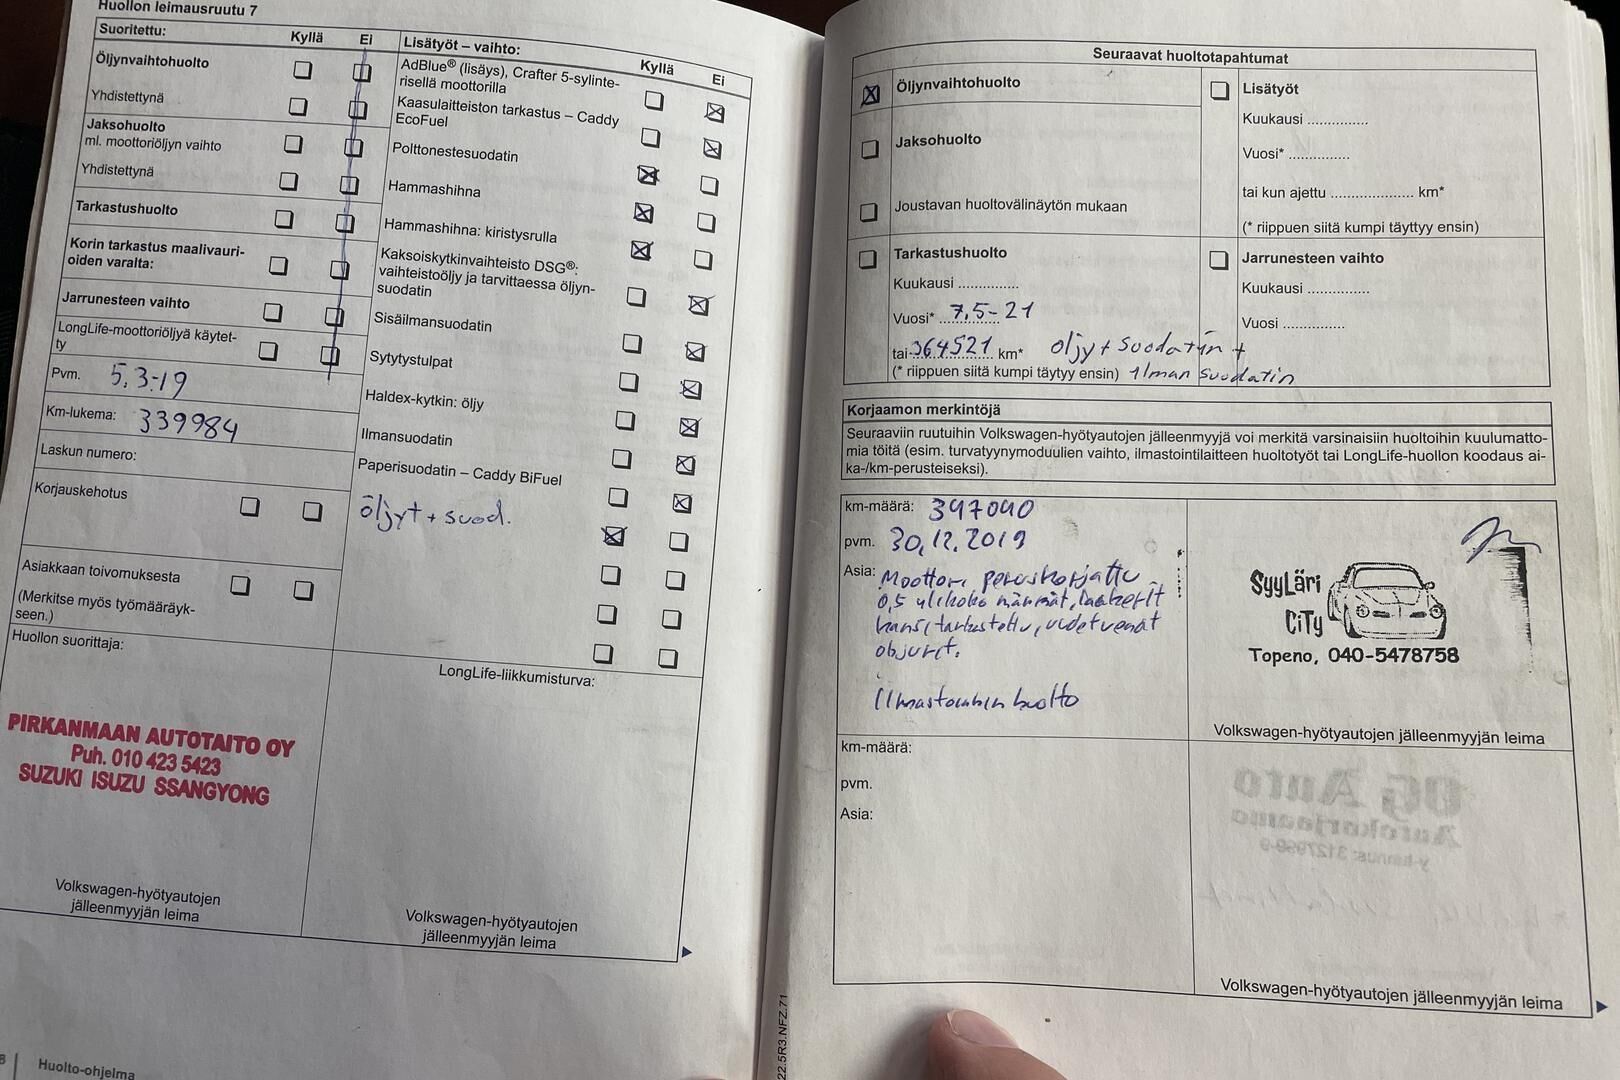 Huollon leimausruutu 7
Suoritettu: Kyllä Ei
Öljynvaihtohuolto
Yhdistettynä
Jaksohuolto
ml. moottoriöljyn vaihto
Yhdistettynä
Tarkastushuolto
Korin tarkastus maalivauri-
oiden varalta:
Jarrunesteen vaihto
LongLife-moottoriöljyä käytet-
ty
Pvm. 5.3.-19
Km-lukema: 339984
Laskun numero:
Korjauskehotus
Asiakkaan toivomuksesta
(Merkitse myös työmääräyk-
seen.)
Huollon suorittaja:
PIRKANMAAN AUTOTAITO OY
Puh. 010 423 5423
SUZUKI ISUZU SSANGYONG
Volkswagen-hyötyautojen
jälleenmyyjän leima
Lisätyöt – vaihto: Kyllä Ei
AdBlue® (lisäys), Crafter 5-sylinte-
risellä moottorilla
Kaasulaitteiston tarkastus – Caddy
EcoFuel
Polttonestesuodatin
Hammashihna
Hammashihna: kiristysrulla
Kaksoiskytkinvaihteisto DSG®:
vaihteistoöljy ja tarvittaessa öljyn-
suodatin
Sisäilmansuodatin
Sytytystulpat
Haldex-kytkin: öljy
Ilmansuodatin
Paperisuodatin – Caddy BiFuel
öljyt + suod.
LongLife-liikkumisturva:
Volkswagen-hyötyautojen
jälleenmyyjän leima
Huolto-ohjelma
22.5R3.NFZ.71
Seuraavat huoltotapahtumat
Öljynvaihtohuolto
Jaksohuolto
Joustavan huoltovälinäytön mukaan
Lisätyöt
Kuukausi ...............
Vuosi* ...............
tai kun ajettu .................... km*
(* riippuen siitä kumpi täyttyy ensin)
Tarkastushuolto
Kuukausi ...............
Vuosi* 7,5-21
tai 364521 km* öljy + suodatin +
(* riippuen siitä kumpi täytyy ensin) ilman suodatin
Jarrunesteen vaihto
Kuukausi ...............
Vuosi ...............
Korjaamon merkintöjä
Seuraaviin ruutuihin Volkswagen-hyötyautojen jälleenmyyjä voi merkitä varsinaisiin huoltoihin kuulumatto-
mia töitä (esim. turvatyynymoduulien vaihto, ilmastointilaitteen huoltotyöt tai LongLife-huollon koodaus ai-
ka-/km-perusteiseksi).
km-määrä: 347040
pvm. 30.12.2019
Asia: Moottori peruskorjattu
0,5 ylikoko männät, laakerit
kansi tarkastettu, uudet venat
objurit.
Ilmastoinnin huolto
SyyLäri
CiTy
Topeno, 040-5478758
Volkswagen-hyötyautojen jälleenmyyjän leima
km-määrä:
pvm.
Asia:
OG Auto
Autokorjaamo
Volkswagen-hyötyautojen jälleenmyyjän leima